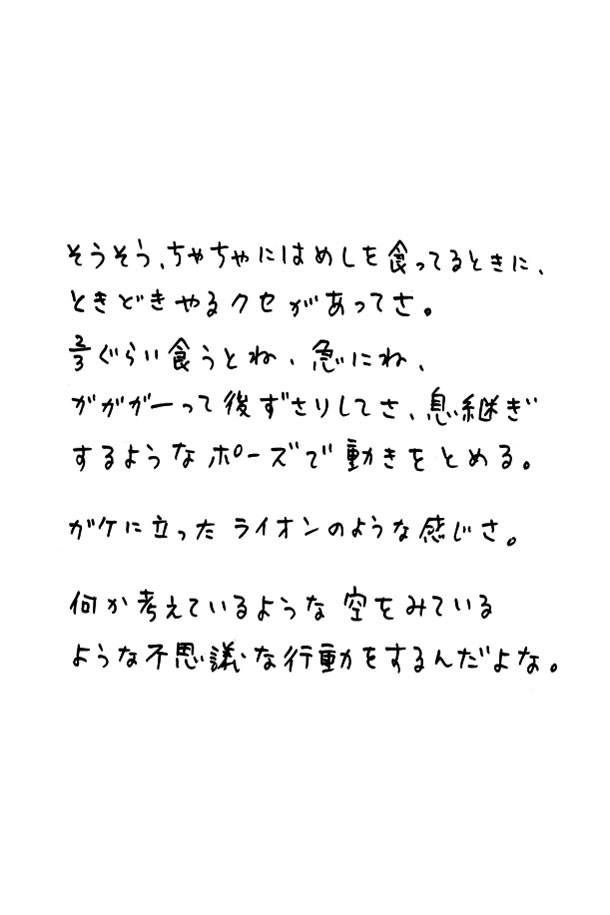 そうそう、ちゃちゃにはめしを食ってるときに、
ときどきやるクセがあってさ。
2/3ぐらい食うとね、急にね、
ガガガーって後ずさりしてさ、息継ぎ
するようなポーズで動きをとめる。
ガケに立ったライオンのような感じさ。
何か考えているような空をみている
ような不思議な行動をするんだよな。